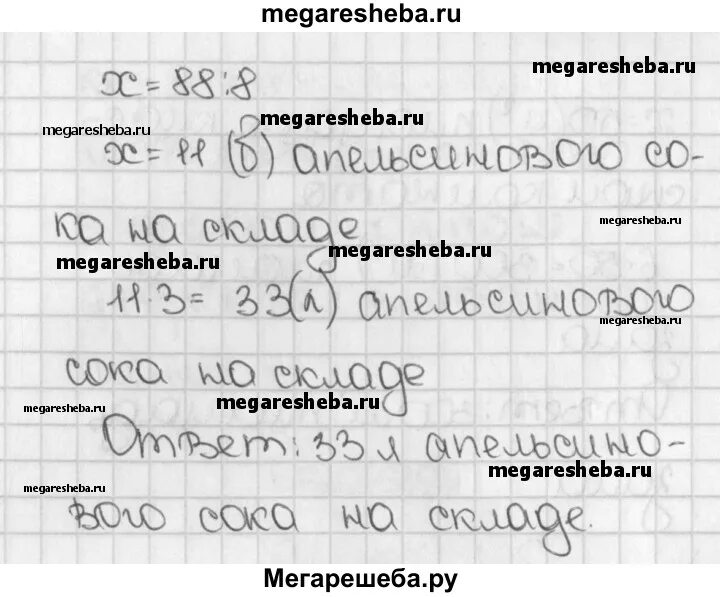 megaresheba.ru
megaresheba.ru
x = 88:8
megaresheba.ru
megaresheba.ru
x = 11 (б) апельсинового со-
megaresheba.ru
ка на складе
megaresheba.ru
megaresheba.ru
11·3 = 33(л) апельсинового
megaresheba.ru
сока на складе
megaresheba.ru
megaresheba.ru
Ответ: 33 л апельсино-
megaresheba.ru
megaresheba.ru
вого сока на складе.
Мегарешеба.ру